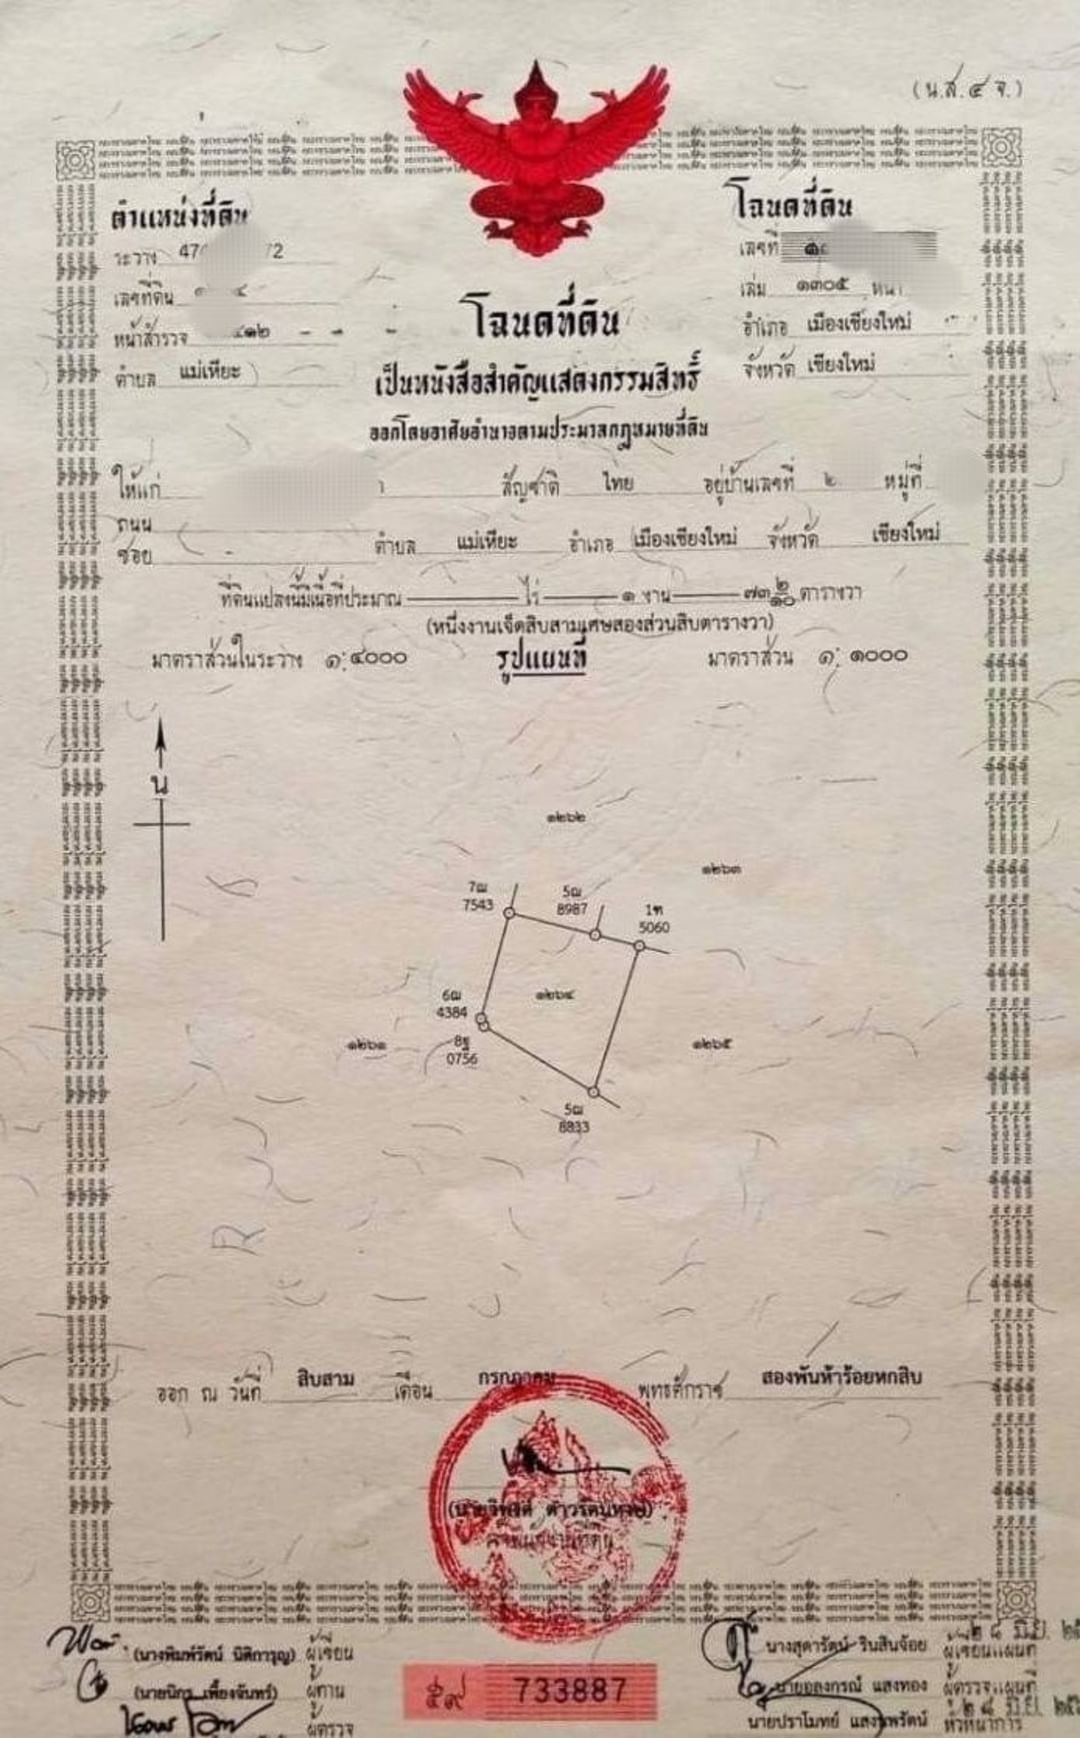 (น.ส.๔ จ.)
ตำแหน่งที่ดิน
โฉนดที่ดิน
ระวาง 47 72
เลขที่
เลขที่ดิน ๔
เล่ม ๑๓๐๕ หน้า
หน้าสำรวจ ๔๑๒ - - -
อำเภอ เมืองเชียงใหม่
ตำบล แม่เหียะ
จังหวัด เชียงใหม่
โฉนดที่ดิน
เป็นหนังสือสำคัญแสดงกรรมสิทธิ์
ออกโดยอาศัยอำนาจตามประมวลกฎหมายที่ดิน
ให้แก่ สัญชาติ ไทย อยู่บ้านเลขที่ ๒ หมู่ที่
ถนน
ซอย - ตำบล แม่เหียะ อำเภอ เมืองเชียงใหม่ จังหวัด เชียงใหม่
ที่ดินแปลงนี้มีเนื้อที่ประมาณ ไร่ ๑ งาน ๗๓ ๒/๑๐ ตารางวา
(หนึ่งงานเจ็ดสิบสามเศษสองส่วนสิบตารางวา)
มาตราส่วนในระวาง ๑:๔๐๐๐ รูปแผนที่ มาตราส่วน ๑: ๑๐๐๐
น
๑๒๖๒
๑๒๖๓
7ฒ
7543
5ฒ
8987
1ฑ
5060
6ฒ
4384
๑๒๖๔
๑๒๖๑
8ฐ
0756
๑๒๖๕
5ฒ
8833
ออก ณ วันที่ สิบสาม เดือน กรกฎาคม พุทธศักราช สองพันห้าร้อยหกสิบ
เจ้าพนักงานที่ดิน
(นางพิมพ์รัตน์ นิติการุญ) ผู้เขียน
(นายนิกร เพื่องจันทร์) ผู้ทาน
ผู้ตรวจ
๕๙ 733887
นางสุดารัตน์ รินสินจ้อย ผู้เขียนแผนที่
นายอลงกรณ์ แสงทอง ผู้ตรวจแผนที่
นายปราโมทย์ แสงพรัตน์ หัวหน้าการ